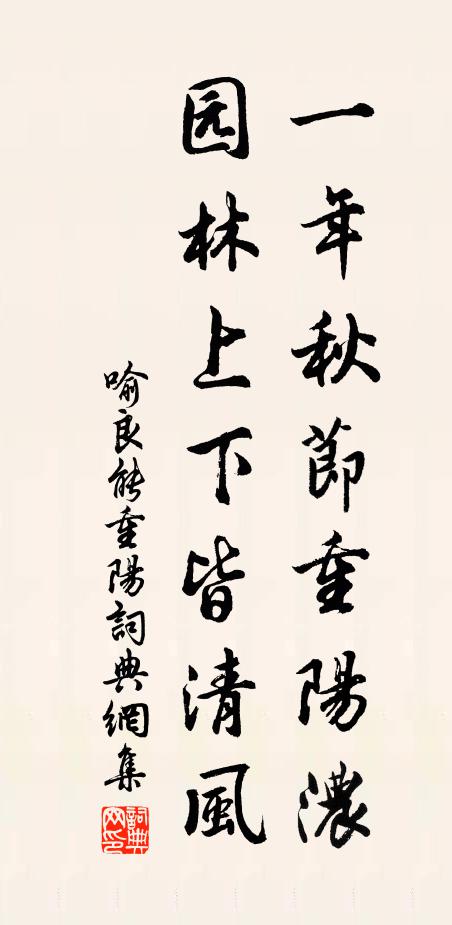 一年秋節重陽濃
园林上下皆清風
喻良能重陽詞典網集
詞典網印